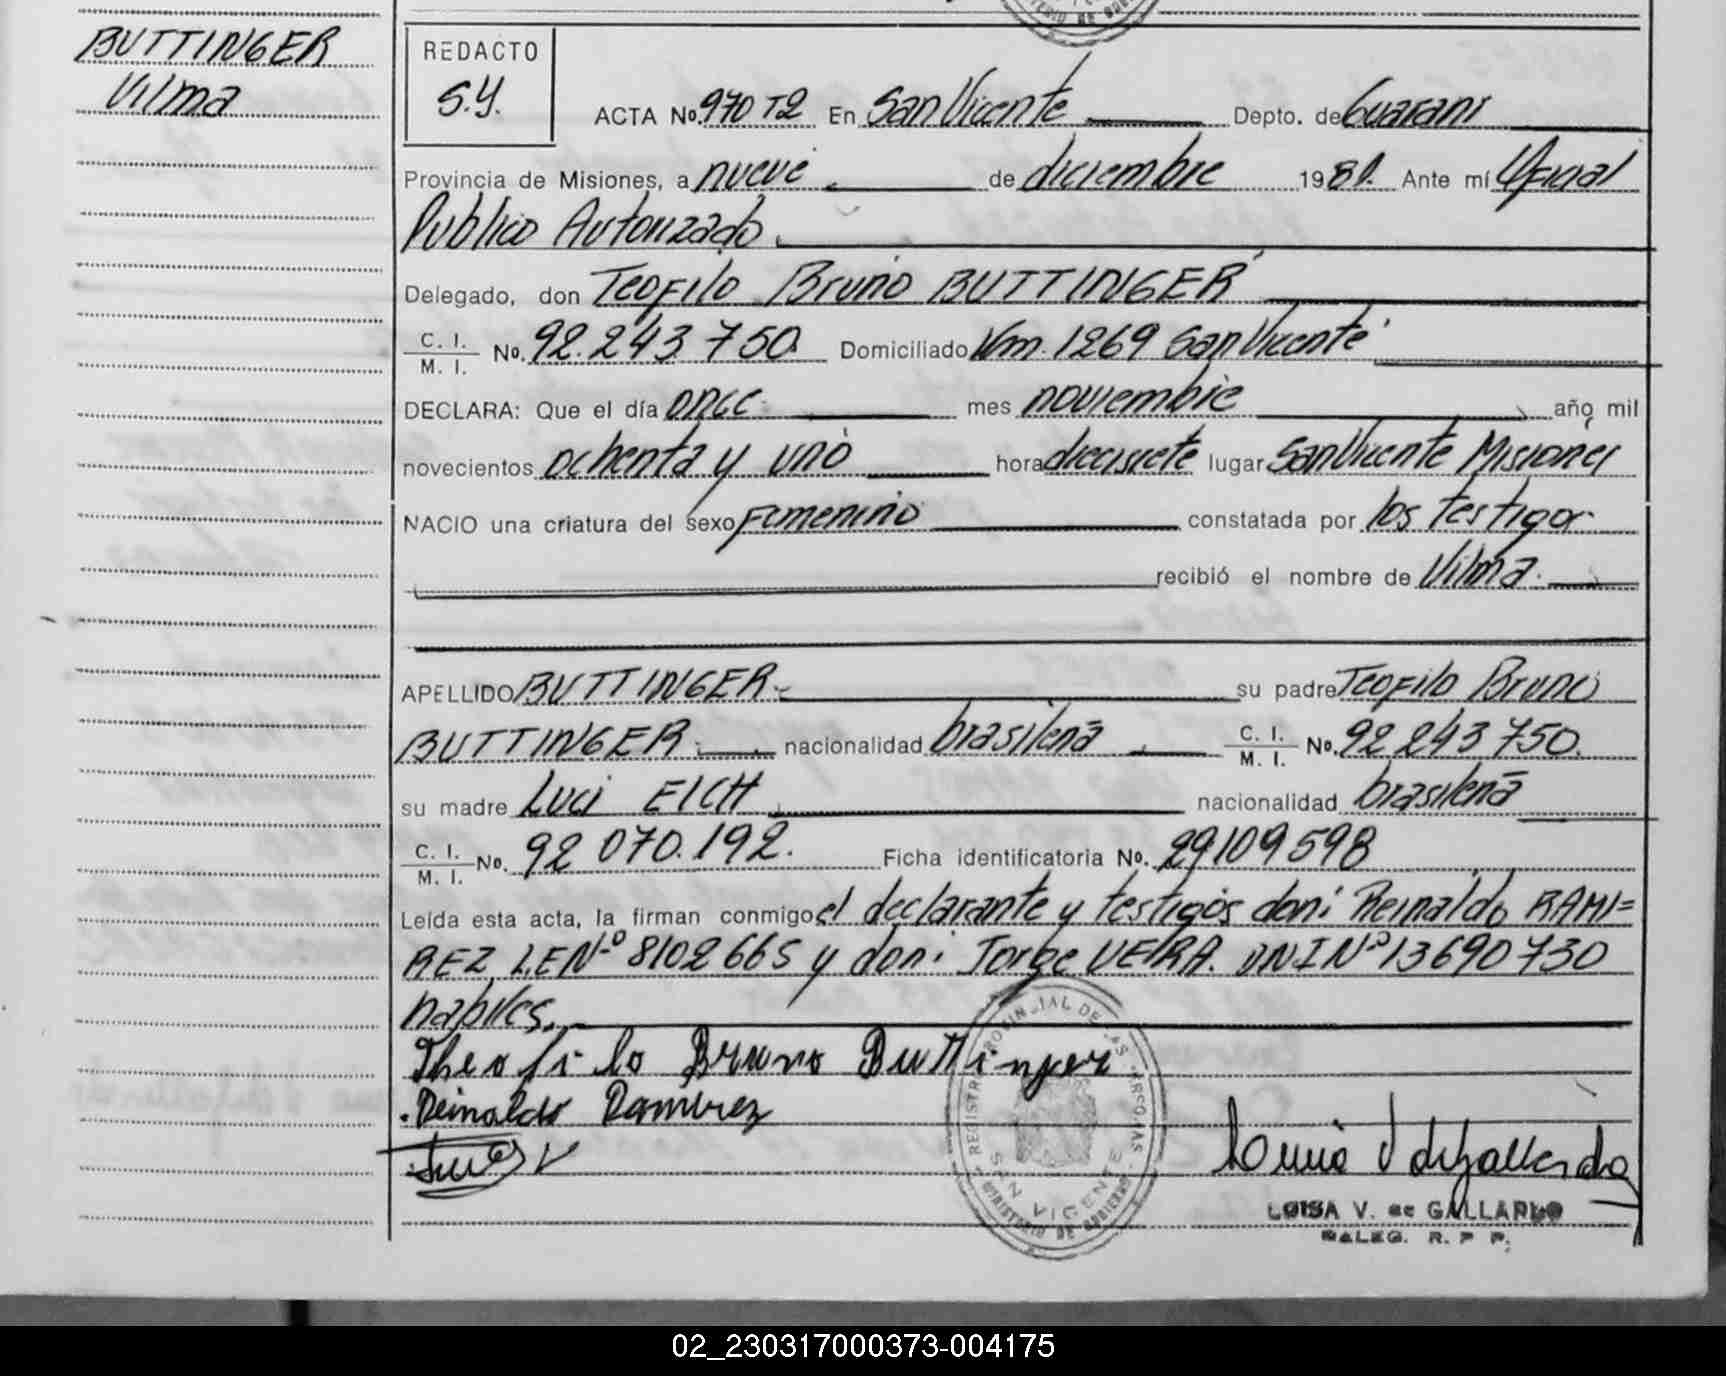 BUTTINGER
Vilma
REDACTO
S.Y.
ACTA No. 970 T2 En San Vicente Depto. de Guarani
Provincia de Misiones, a nueve de diciembre 1981. Ante mí Oficial
Publico Autorizado.
Delegado, don Teofilo Bruno BUTTINGER
C. I. / M. I. No. 92.243.750. Domiciliado Km. 1269 San Vicente
DECLARA: Que el día once mes noviembre año mil
novecientos ochenta y uno hora diecisiete lugar San Vicente Misiones
NACIO una criatura del sexo Femenino constatada por los testigos
recibió el nombre de Vilma.
APELLIDO BUTTINGER. su padre Teofilo Bruno
BUTTINGER. nacionalidad brasileña C. I. / M. I. No. 92 243 750.
su madre Luci EICH nacionalidad brasileña
C. I. / M. I. No. 92 070.192. Ficha identificatoria No. 29109598
Leída esta acta, la firman conmigo el declarante y testigos don: Reinaldo RAMI=
REZ L.E Nº 8102665 y don: Jorge VEIRA. DNI Nº 13690730
habiles.
Theofilo Bruno Buttinger
Reinaldo Ramirez
REGISTRO PROVINCIAL DE LAS PERSONAS
SAN VICENTE
MINISTERIO DE GOBIERNO
LUISA V. de GALLARDO
DALEG. R. P. P.
02_230317000373-004175